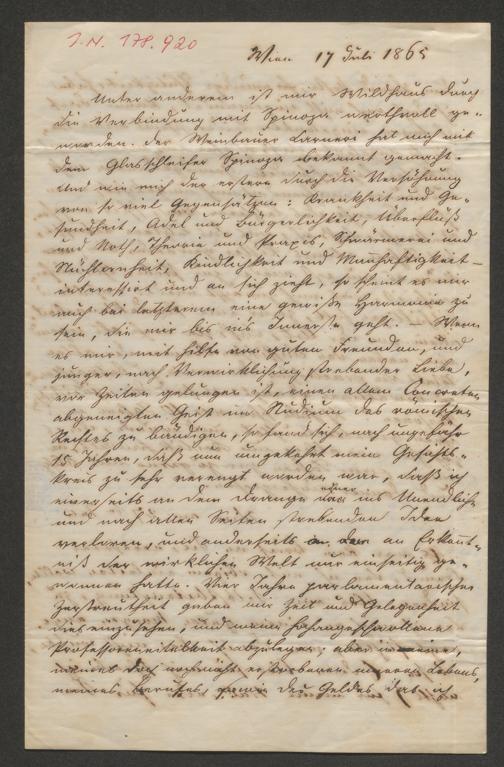 I. N. 178.920
Wien 17 Juli 1865
Unter anderem ist mir Wildhaus durch
die Verbindung mit Spinoza werthvoll ge-
worden. Der Weinbauer Carneri hat mich mit
dem Glasschleifer Spinoza bekannt gemacht.
Und wie mich der erstere durch die Versöhnung
von so viel Gegensätzen: Krankheit und Ge-
sundheit, Adel und Bürgerlichkeit, Überfluß
und Noth, Theorie und Praxis, Schwärmerei und
Nüchternheit, Kindlichkeit und Mannhaftigkeit –
interessirt und an sich zieht, so scheint es mir
auch bei letzterem eine gewisse Harmonie zu
sein, die mir bis ins Innerste geht. – Wenn
es mir, mit Hilfe von guten Freunden, und
junger, nach Verwirklichung strebender Liebe,
vor Zeiten gelungen ist, einen allem Concreten
abgeneigten Geist im Studium des römischen
Rechtes zu bändigen, so fand sich, nach ungefähr
15 Jahren, daß nun umgekehrt mein Gesichts-
kreis zu sehr verengt worden war, daß ich
einerseits an dem Drange der ins Unendliche
und nach allen Seiten strebenden Idee
verloren, und anderseits an Erkennt-
niß der wirklichen Welt nur einseitig ge-
wonnen hatte. Vier Jahre parlamentarischer
Zerstreutheit gaben mir Zeit und Gelegenheit
dies einzusehen, und meine
Professoreneitelkeit abzulegen; aber
doch noch nicht meines Lebens,
meines Berufes, des Geldes das ich